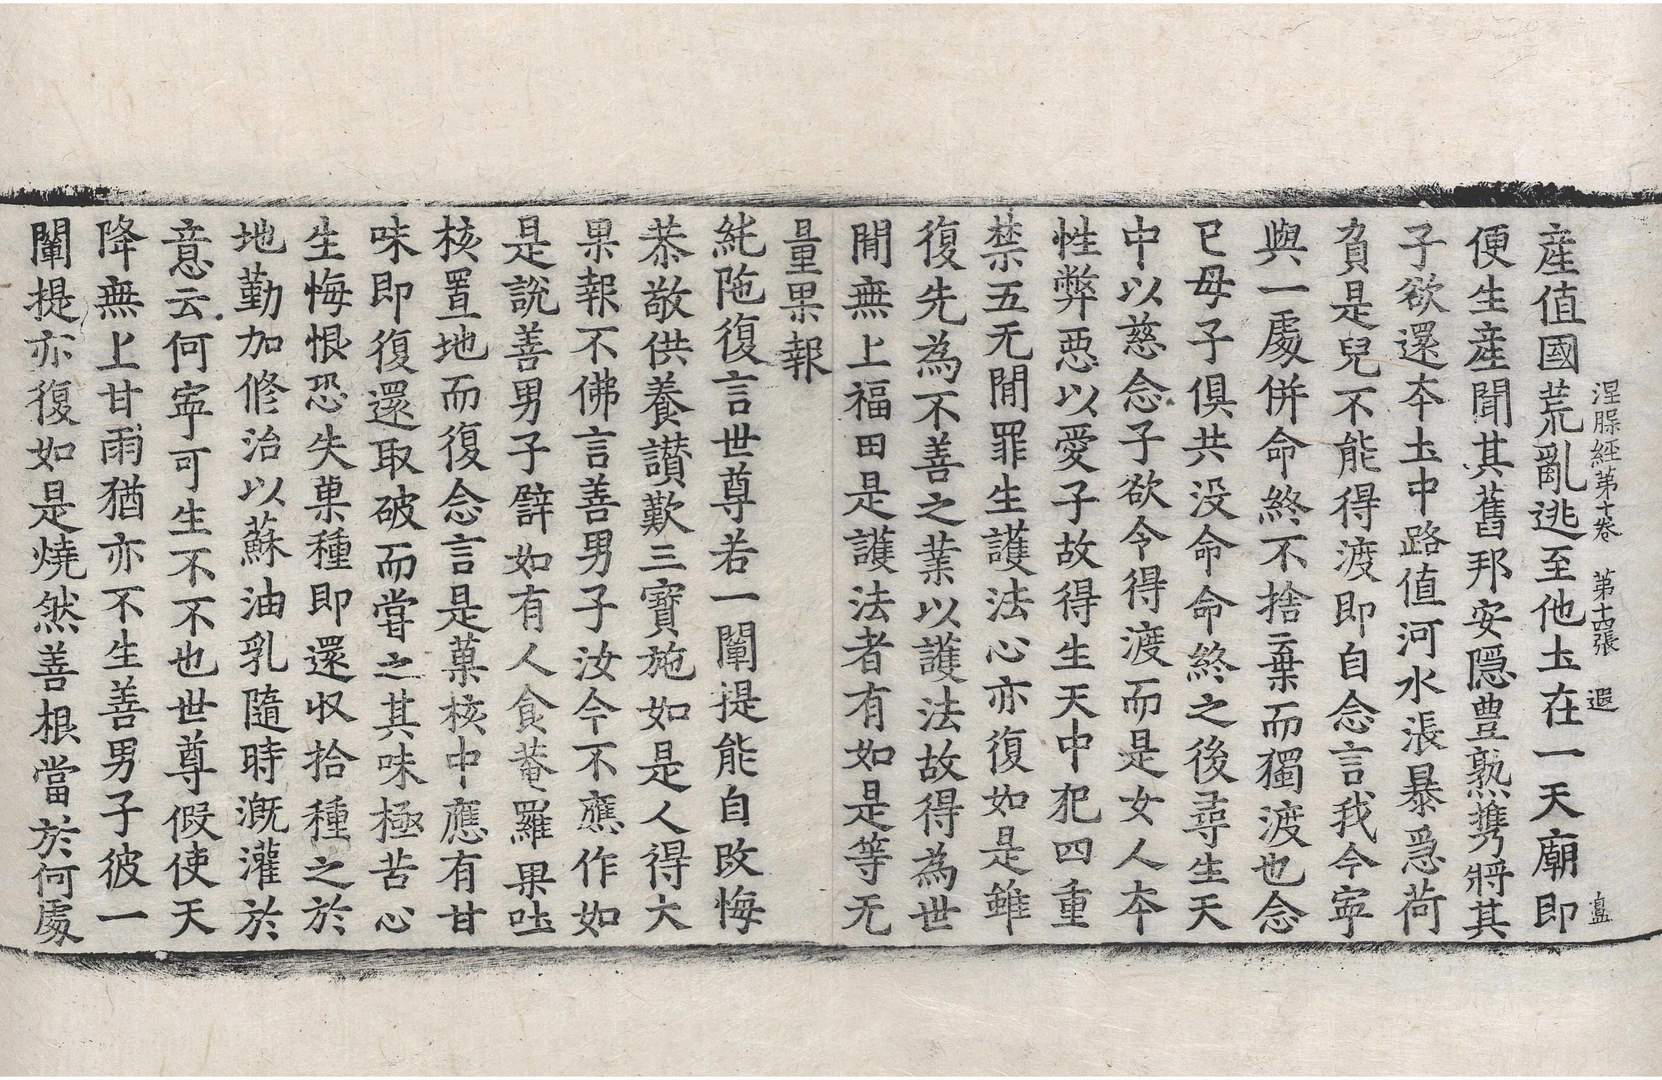 涅槃經第十卷　第十四張　遐
産值國荒亂逃至他圡在一天廟即
便生産聞其舊邦安隱豊熟携將其
子欲還夲圡中路值河水漲暴急荷
負是兒不能得渡即自念言我今寜
與一處併命終不捨棄而獨渡也念
已母子俱共没命命終之後尋生天
中以慈念子欲令得渡而是女人夲
性弊惡以愛子故得生天中犯四重
禁五无閒罪生護法心亦復如是雖
復先為不善之業以護法故得為世
閒無上福田是護法者有如是等无
量果報
純陁復言世尊若一闡提能自改悔
恭敬供養讃歎三寶施如是人得大
果報不佛言善男子汝今不應作如
是説善男子譬如有人食菴羅果吐
核置地而復念言是菓核中應有甘
味即復還取破而甞之其味極苦心
生悔恨恐失菓種即還収拾種之於
地勤加修治以蘇油乳隨時溉灌於
意云何寜可生不不也世尊假使天
降無上甘雨猶亦不生善男子彼一
闡提亦復如是燒然善根當於何處